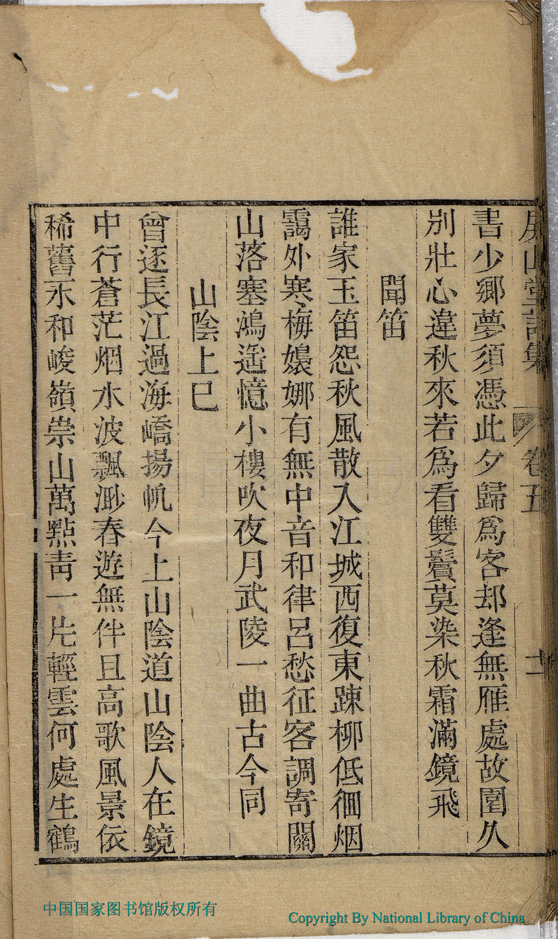 山堂詩集 卷五 十一
書少鄉夢須憑此夕歸爲客却逢無雁處故園久
別壯心違秋來若爲看雙鬢莫染秋霜滿鏡飛
聞笛
誰家玉笛怨秋風散入江城西復東踈柳低徊烟
靄外寒梅嬝娜有無中音和律呂愁征客調寄關
山落塞鴻遥憶小樓吹夜月武陵一曲古今同
山陰上巳
曾逐長江過海嶠揚帆今上山陰道山陰人在鏡
中行蒼茫烟水波飄渺春遊無伴且高歌風景依
稀舊永和峻嶺崇山萬點靑一片輕雲何處生鶴
中国国家图书馆版权所有
Copyright By National Library of China